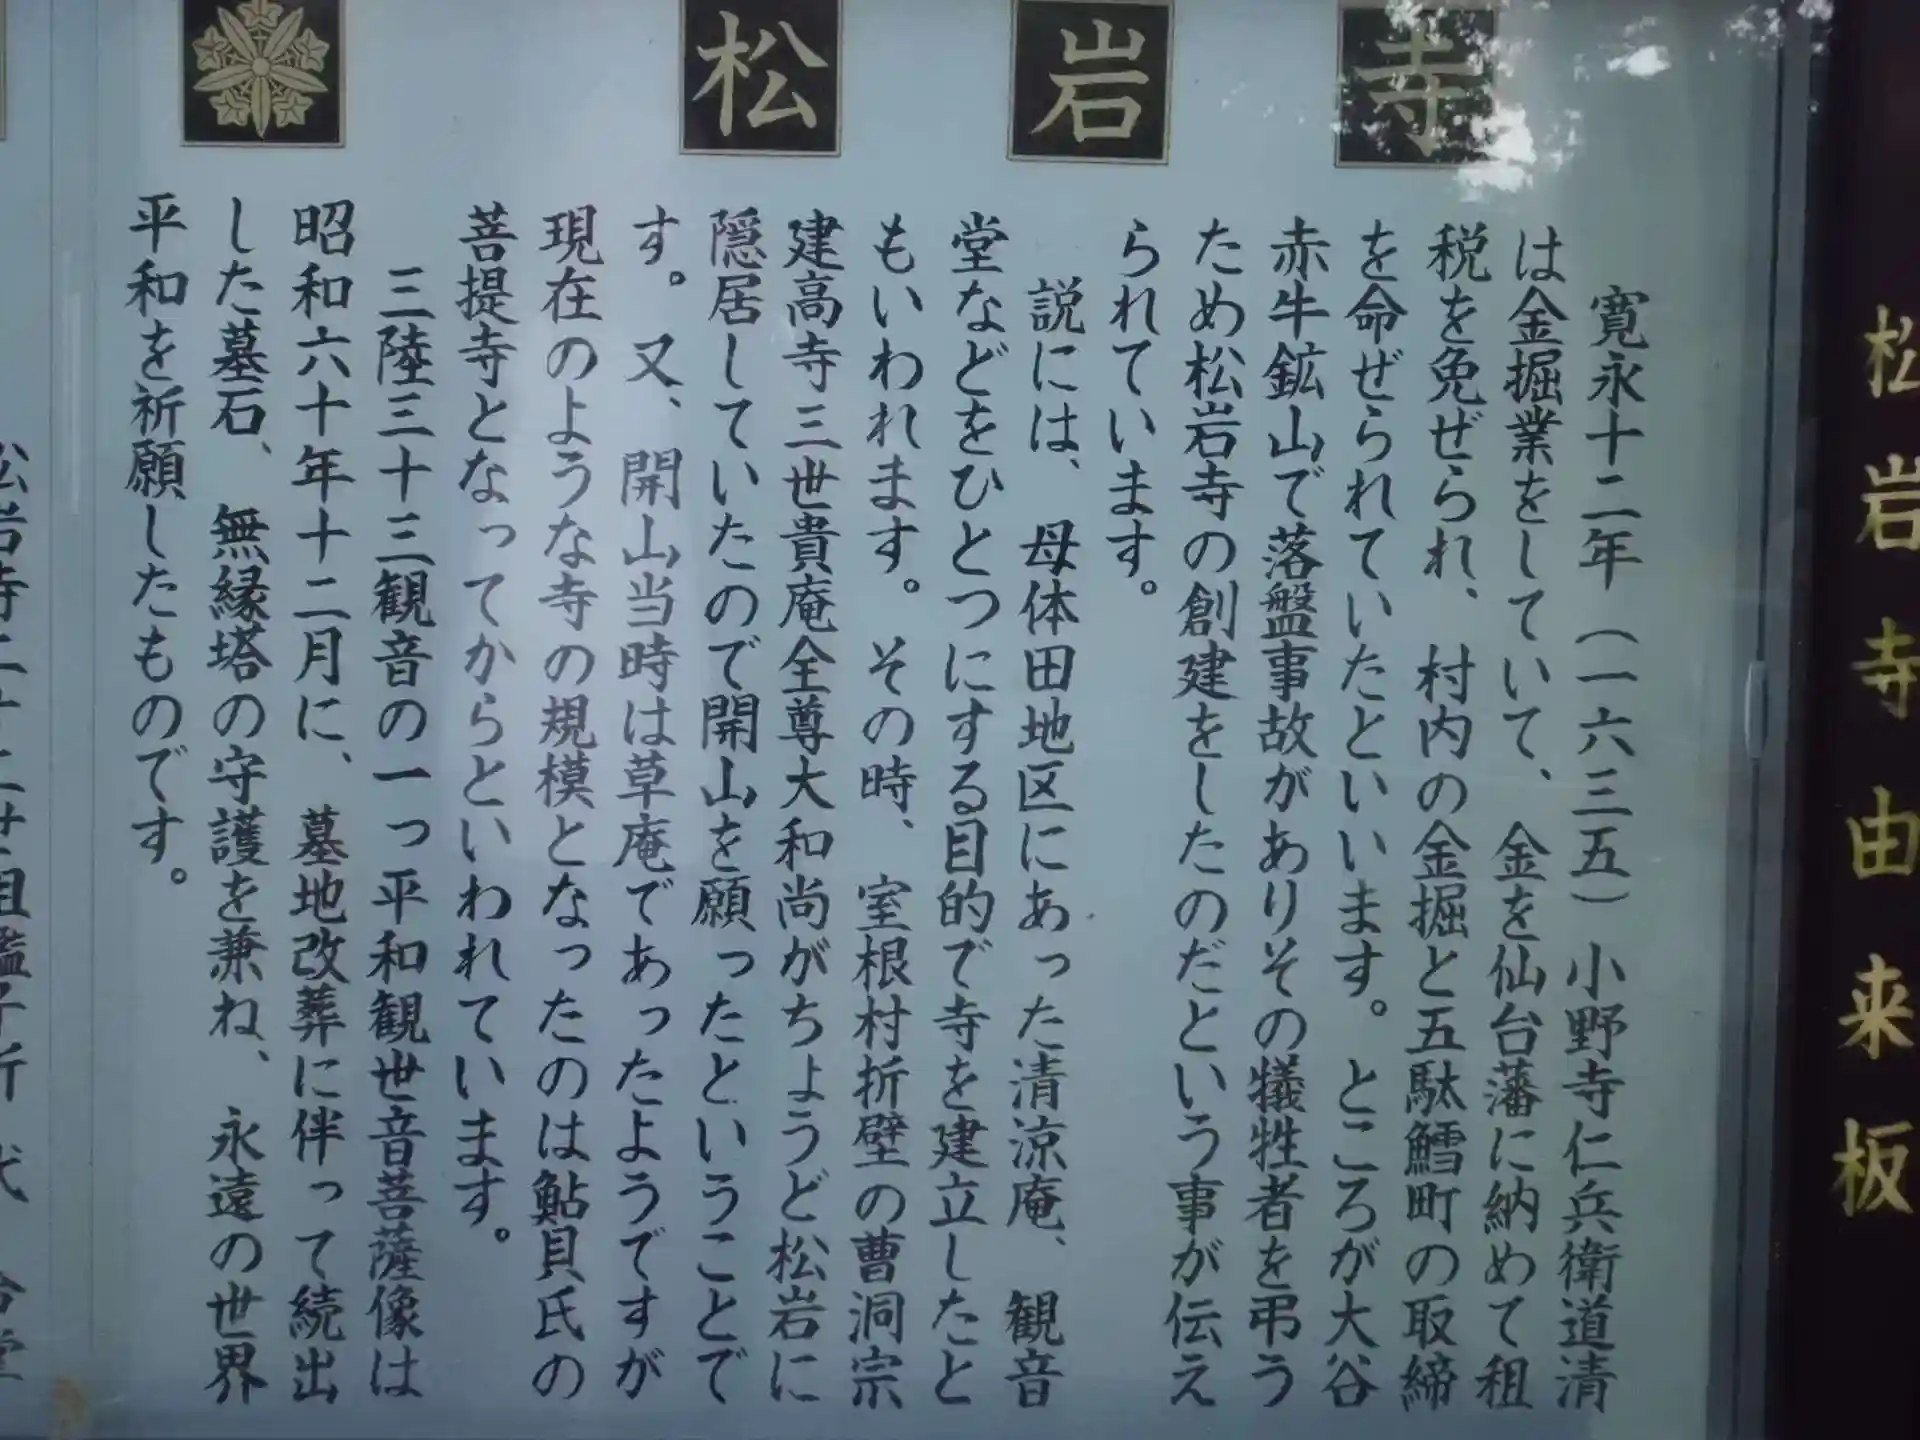 松岩寺由来板
寺
岩
松
寛永十二年(一六三五)小野寺仁兵衛道清
は金掘業をしていて、金を仙台藩に納めて租
税を免ぜられ、村内の金掘と五駄鱈町の取締
を命ぜられていたといいます。ところが大谷
赤牛鉱山で落盤事故がありその犠牲者を弔う
ため松岩寺の創建をしたのだという事が伝え
られています。
説には、母体田地区にあった清涼庵、観音
堂などをひとつにする目的で寺を建立したと
もいわれます。その時、室根村折壁の曹洞宗
建高寺三世貴庵全尊大和尚がちょうど松岩に
隠居していたので開山を願ったということで
す。又、開山当時は草庵であったようですが
現在のような寺の規模となったのは鮎貝氏の
菩提寺となってからといわれています。
三陸三十三観音の一つ平和観世音菩薩像は
昭和六十年十二月に、墓地改葬に伴って続出
した墓石、無縁塔の守護を兼ね、永遠の世界
平和を祈願したものです。